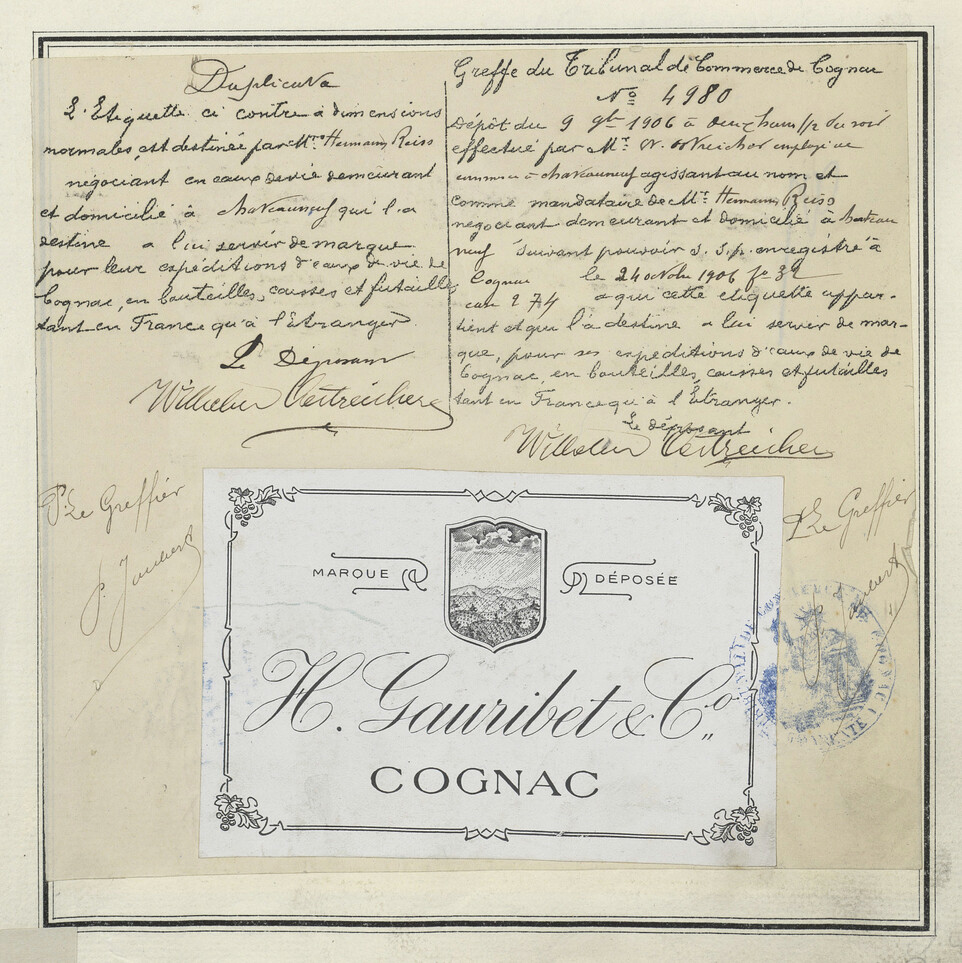 Duplicata
L'Etiquette ci contre a dimensions
normales, est destinée par Mr. Hermann Reiss
négociant en eaux de vie demeurant
et domicilié à Chateauneuf qui l'a
destine a lui servir de marque
pour leur expéditions d'eaux de vie de
Cognac, en bouteilles, caisses et futailles
tant en France qu'à l'Etranger.
Le Déposant
Wilhelm Oestreicher
P. Le Greffier
Greffe du Tribunal de Commerce de Cognac
No 4980
Dépôt du 9 9bre 1906 à deux heures 1/2 du soir
effectué par Mr. employé de
commerce à Chateauneuf agissant au nom et
comme mandataire de Mr. Hermann Reiss
négociant demeurant et domicilié à Chateau
neuf suivant pouvoir s. s. p. enregistré à
Cognac le 24 octobre 1906 fo 32
case 274 a qui cette etiquette appar-
tient et qui l'a destine a lui servir de mar-
que, pour ses expéditions d'eaux de vie de
Cognac, en bouteilles, caisses et futailles
tant en France qu'à l'Etranger.
Le déposant
Wilhelm Oestreicher
P. Le Greffier
MARQUE DÉPOSÉE
H. Gauribet & Co.
COGNAC